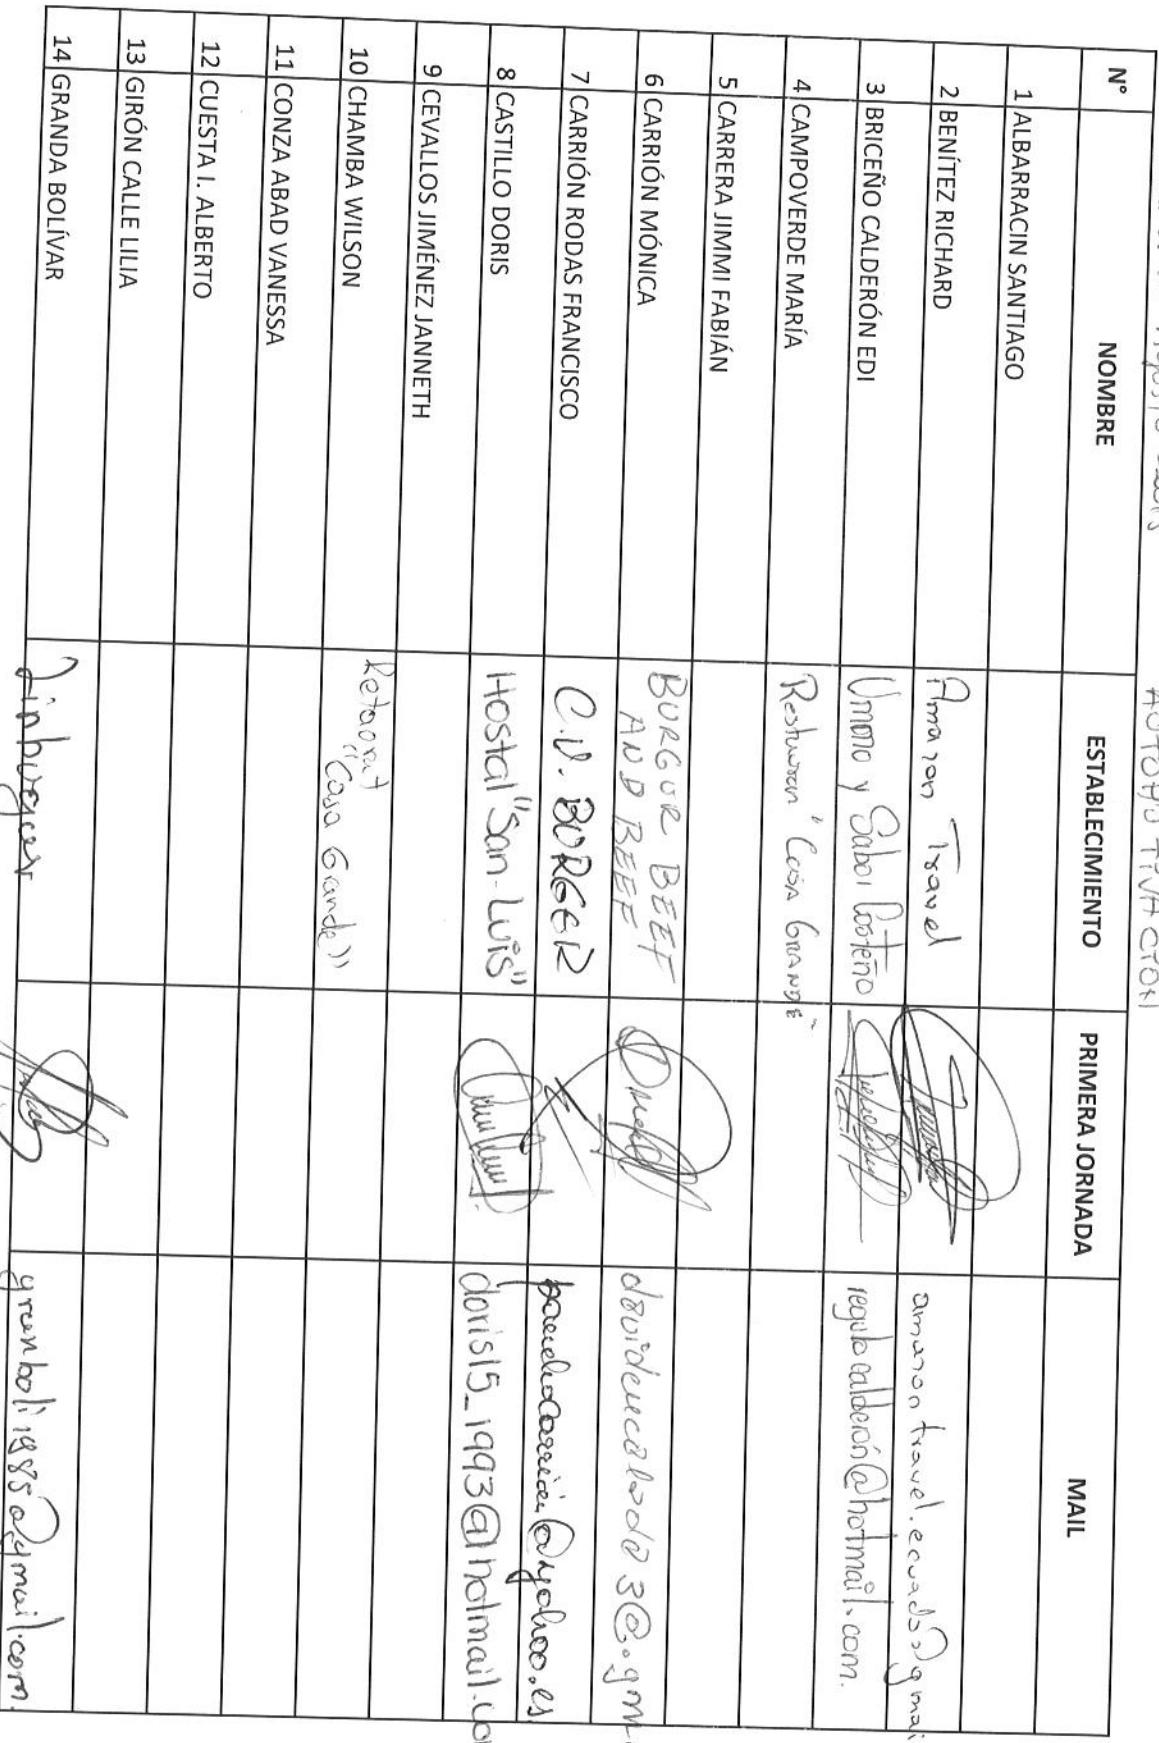 N° NOMBRE ESTABLECIMIENTO PRIMERA JORNADA MAIL
1 ALBARRACIN SANTIAGO
2 BENÍTEZ RICHARD Amazon Travel amazontravel.ecuador@gmai
3 BRICEÑO CALDERÓN EDI Umoro y Sabor Costeño regulocalderón@hotmail.com.
4 CAMPOVERDE MARÍA Resturran "Casa GRANDE"
5 CARRERA JIMMI FABIÁN
6 CARRIÓN MÓNICA BURGUR BEEF
AND BEEF davidencalada3@.gm
7 CARRIÓN RODAS FRANCISCO C.V. BURGER panchocarrión@yahoo.es
8 CASTILLO DORIS Hostal "San-Luis" doris15_1993@hotmail.co
9 CEVALLOS JIMÉNEZ JANNETH
10 CHAMBA WILSON Retaorat
"Casa Grande"
11 CONZA ABAD VANESSA
12 CUESTA I. ALBERTO
13 GIRÓN CALLE LILIA
14 GRANDA BOLÍVAR granboli1985@gmail.com.